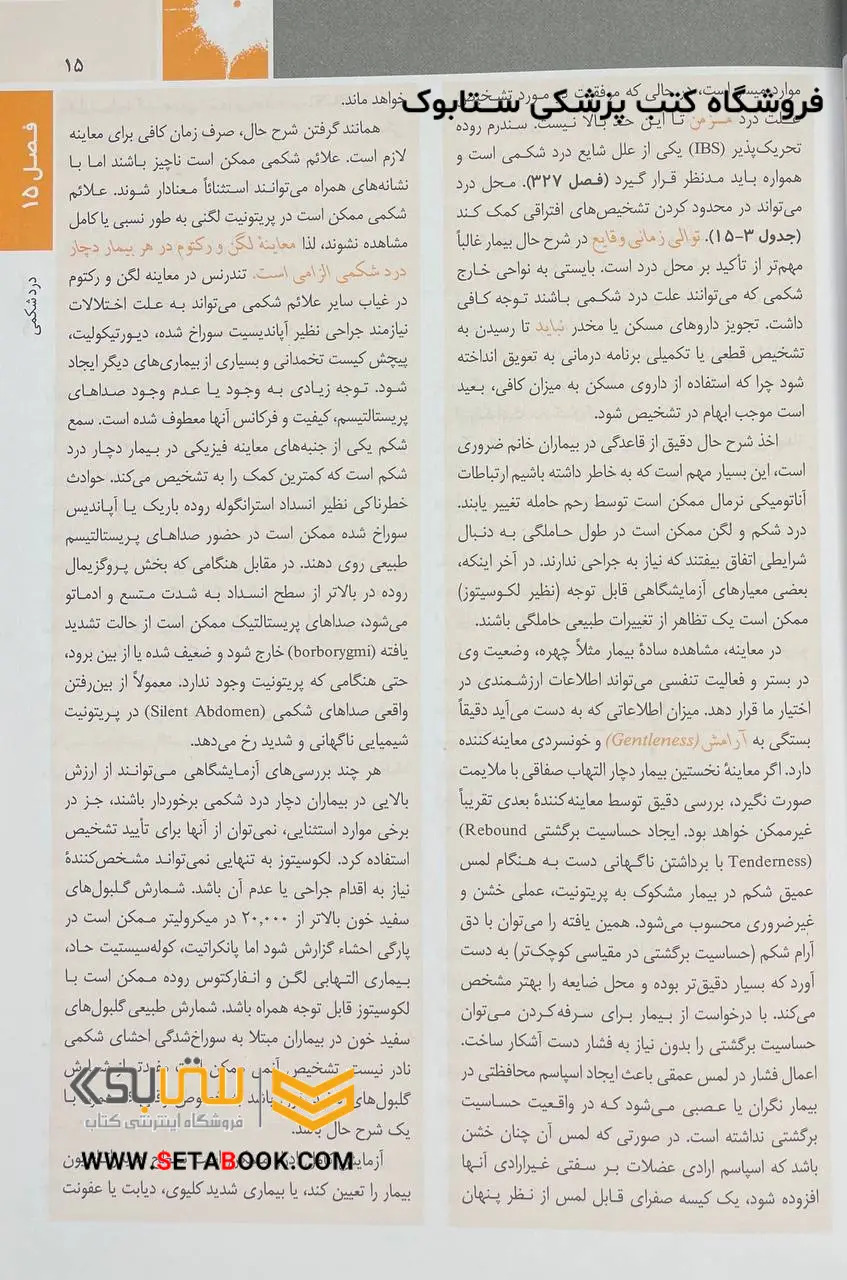 ۱۵
فروشگاه کتب پزشکی ستابوک
فصل ۱۵
درد شکمی
علت درد مزمن تا این حد بالا نیست. سندرم روده
تحریک‌پذیر (IBS) یکی از علل شایع درد شکمی است و
همواره باید مدنظر قرار گیرد (فصل ۳۲۷). محل درد
می‌تواند در محدود کردن تشخیص‌های افتراقی کمک کند
(جدول ۳-۱۵). توالی زمانی وقایع در شرح حال بیمار غالباً
مهم‌تر از تأکید بر محل درد است. بایستی به نواحی خارج
شکمی که می‌توانند علت درد شکمی باشند توجه کافی
داشت. تجویز داروهای مسکن یا مخدر نباید تا رسیدن به
تشخیص قطعی یا تکمیلی برنامه درمانی به تعویق انداخته
شود چرا که استفاده از داروی مسکن به میزان کافی، بعید
است موجب ابهام در تشخیص شود.
اخذ شرح حال دقیق از قاعدگی در بیماران خانم ضروری
است، این بسیار مهم است که به خاطر داشته باشیم ارتباطات
آناتومیکی نرمال ممکن است توسط رحم حامله تغییر یابند.
درد شکم و لگن ممکن است در طول حاملگی به دنبال
شرایطی اتفاق بیفتند که نیاز به جراحی ندارند. در آخر اینکه،
بعضی معیارهای آزمایشگاهی قابل توجه (نظیر لکوسیتوز)
ممکن است یک تظاهر از تغییرات طبیعی حاملگی باشند.
در معاینه، مشاهده سادهٔ بیمار مثلاً چهره، وضعیت وی
در بستر و فعالیت تنفسی می‌تواند اطلاعات ارزشمندی در
اختیار ما قرار دهد. میزان اطلاعاتی که به دست می‌آید دقیقاً
بستگی به آرامش (Gentleness) و خونسردی معاینه‌کننده
دارد. اگر معاینهٔ نخستین بیمار دچار التهاب صفاقی با ملایمت
صورت نگیرد، بررسی دقیق توسط معاینه‌کنندهٔ بعدی تقریباً
غیرممکن خواهد بود. ایجاد حساسیت برگشتی (Rebound
Tenderness) با برداشتن ناگهانی دست به هنگام لمس
عمیق شکم در بیمار مشکوک به پریتونیت، عملی خشن و
غیرضروری محسوب می‌شود. همین یافته را می‌توان با دق
آرام شکم (حساسیت برگشتی در مقیاسی کوچک‌تر) به دست
آورد که بسیار دقیق‌تر بوده و محل ضایعه را بهتر مشخص
می‌کند. با درخواست از بیمار برای سرفه‌کردن می‌توان
حساسیت برگشتی را بدون نیاز به فشار دست آشکار ساخت.
اعمال فشار در لمس عمقی باعث ایجاد اسپاسم محافظتی در
بیمار نگران یا عصبی می‌شود که در واقعیت حساسیت
برگشتی نداشته است. در صورتی که لمس آن چنان خشن
باشد که اسپاسم ارادی عضلات بر سفتی غیرارادی آنها
افزوده شود، یک کیسه صفرای قابل لمس از نظر پنهان
خواهد ماند.
همانند گرفتن شرح حال، صرف زمان کافی برای معاینه
لازم است. علائم شکمی ممکن است ناچیز باشند اما با
نشانه‌های همراه می‌توانند استثنائاً معنادار شوند. علائم
شکمی ممکن است در پریتونیت لگنی به طور نسبی یا کامل
مشاهده نشوند، لذا معاینهٔ لگن و رکتوم در هر بیمار دچار
درد شکمی الزامی است. تندرنس در معاینه لگن و رکتوم
در غیاب سایر علائم شکمی می‌تواند به علت اختلالات
نیازمند جراحی نظیر آپاندیسیت سوراخ شده، دیورتیکولیت،
پیچش کیست تخمدانی و بسیاری از بیماری‌های دیگر ایجاد
شود. توجه زیادی به وجود یا عدم وجود صداهای
پریستالتیسم، کیفیت و فرکانس آنها معطوف شده است. سمع
شکم یکی از جنبه‌های معاینه فیزیکی در بیمار دچار درد
شکم است که کمترین کمک را به تشخیص می‌کند. حوادث
خطرناکی نظیر انسداد استرانگوله روده باریک یا آپاندیس
سوراخ شده ممکن است در حضور صداهای پریستالتیسم
طبیعی روی دهند. در مقابل هنگامی که بخش پروگزیمال
روده در بالاتر از سطح انسداد به شدت متسع و ادماتو
می‌شود، صداهای پریستالتیک ممکن است از حالت تشدید
یافته (borborygmi) خارج شود و ضعیف شده یا از بین برود،
حتی هنگامی که پریتونیت وجود ندارد. معمولاً از بین‌رفتن
واقعی صداهای شکمی (Silent Abdomen) در پریتونیت
شیمیایی ناگهانی و شدید رخ می‌دهد.
هر چند بررسی‌های آزمایشگاهی می‌توانند از ارزش
بالایی در بیماران دچار درد شکمی برخوردار باشند، جز در
برخی موارد استثنایی، نمی‌توان از آنها برای تأیید تشخیص
استفاده کرد. لکوسیتوز به تنهایی نمی‌تواند مشخص‌کنندهٔ
نیاز به اقدام جراحی یا عدم آن باشد. شمارش گلبول‌های
سفید خون بالاتر از ۲۰,۰۰۰ در میکرولیتر ممکن است در
پارگی احشاء گزارش شود اما پانکراتیت، کوله‌سیستیت حاد،
بیماری التهابی لگن و انفارکتوس روده ممکن است با
لکوسیتوز قابل توجه همراه باشد. شمارش طبیعی گلبول‌های
سفید خون در بیماران مبتلا به سوراخ‌شدگی احشای شکمی
نادر نیست. تشخیص آنمی
گلبول‌های
یک شرح حال باشد.
بیمار را تعیین کند، یا بیماری شدید کلیوی، دیابت یا عفونت
ستابوک
فروشگاه اینترنتی کتاب
WWW.SETABOOK.COM